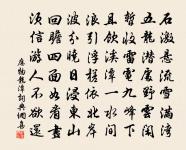 石激懸流雪滿灣
五龍潛處野雲閒
暫收雷電九峰下
且飲溪潭一水間
浪引浮槎依北岸
波分曉日浸東山
回瞻四面如看畫
須信游人不欲還
應物龍潭詞典網書